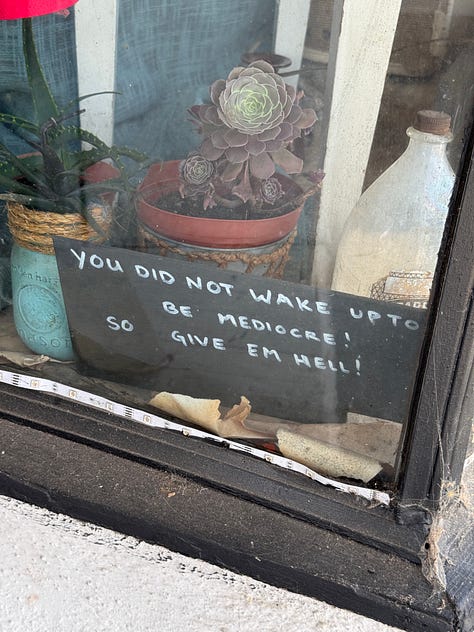 YOU DID NOT WAKE UPTO
BE MEDIOCRE!
SO GIVE EM HELL!